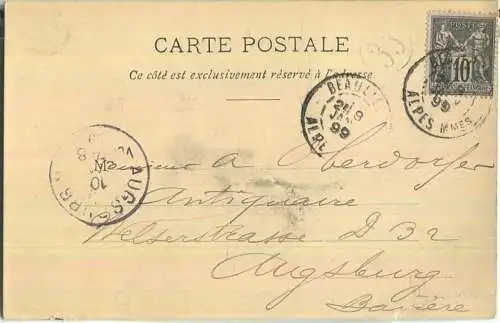 CARTE POSTALE
Ce côté est exclusivement réservé à l'adresse
POSTE
10
BEAU
99
ALPES MMES
99
ALPES MMES
33
AUGSBURG
10
Monsieur A Oberdorfer
Antiquaire
Welserstrasse D 32
Augsburg
Bavière